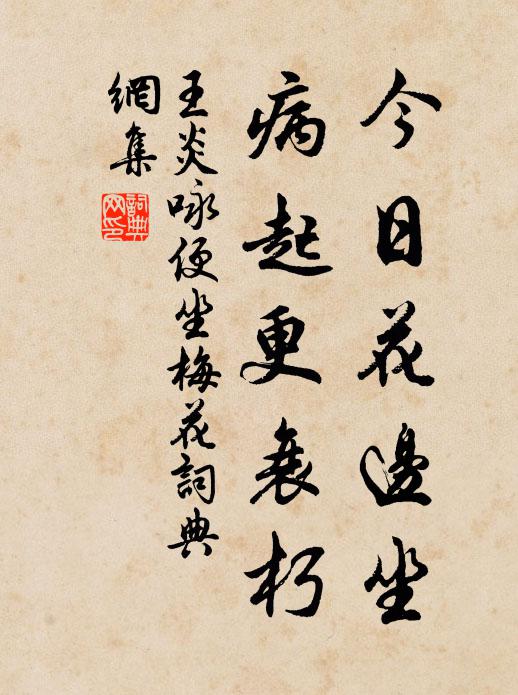 今日花邊坐
病起更衰朽
王炎咏便坐梅花詞典
網集
詞典
网印